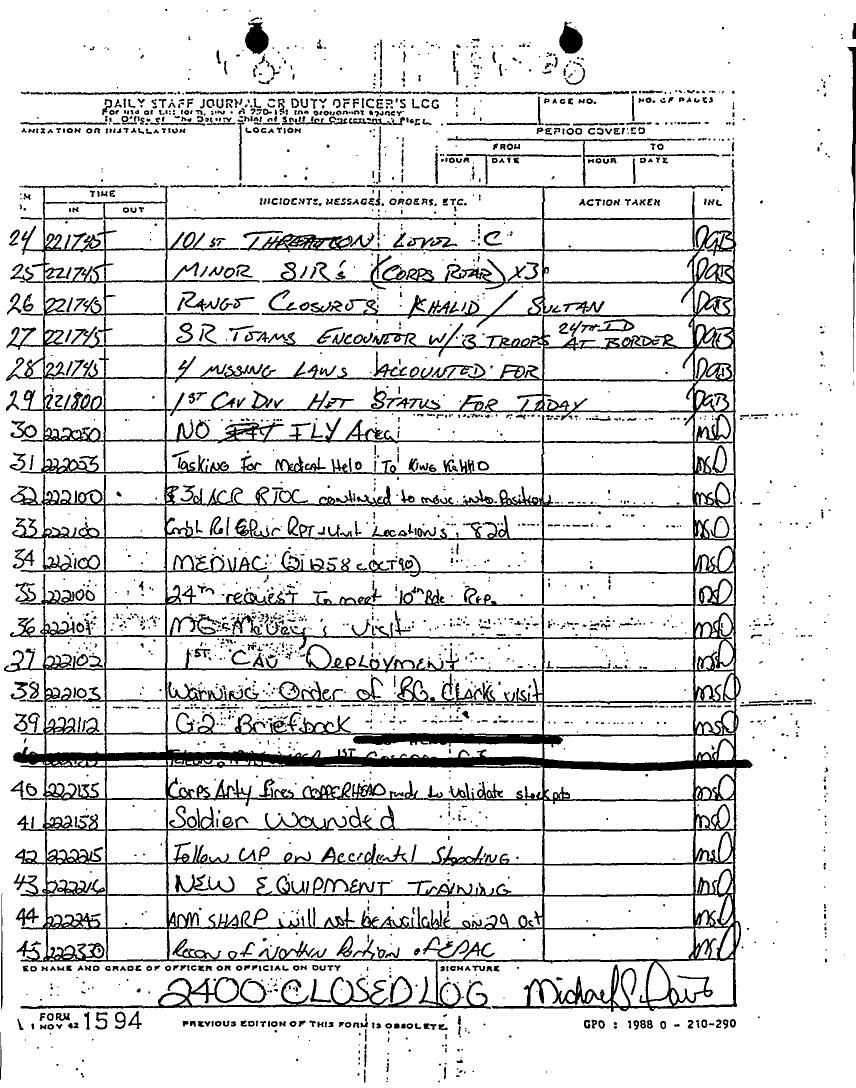 DAILY STAFF JOURNAL OR DUTY OFFICER'S LOG
PAGE NO.
NO. OF PAGES
ANIZATION OR INSTALLATION
LOCATION
PERIOD COVERED
FROM
TO
HOUR
DATE
HOUR
DATE
TIME
IN
OUT
INCIDENTS, MESSAGES, ORDERS, ETC.
ACTION TAKEN
INL
24 221745 101ST THREATCON LEVEL C DGB
25 221745 MINOR SIR's (CORPS ROTAR) X3 DGB
26 221745 RANGE CLOSURES KHALID / SULTAN DGB
27 221745 SR TEAMS ENCOUNTER W/ 3 TROOPS 24TH ID AT BORDER DGB
28 221745 4 MISSING LAWS ACCOUNTED FOR DGB
29 221800 1ST CAV DIV HET STATUS FOR TODAY DGB
30 222050 NO FLY Area MSD
31 222053 Tasking For Medical Helo To King Kahlid MSD
32 222100 3d ACR RTOC continued to move into Position MSD
33 222100 Cmbt Pwr RPT + Unit Locations, 82d MSD
34 222100 MEDVAC (211258C OCT 90) MSD
35 222100 24th request To meet 10th Bde Rep. MSD
36 222101 visit MSD
37 222102 1ST CAV Deployment MSD
38 222103 Warning Order of BG. Clarks visit MSD
39 222112 G2 Briefback MSD
40 222135 Corps Arty fires COPPERHEAD to validate MSD
41 222158 Soldier Wounded MSD
42 222215 Follow UP on Accidental Shooting MSD
43 222216 NEW EQUIPMENT TRAINING MSD
44 222245 ADM SHARP will not be available on 29 Oct MSD
45 222330 Recon of Northern Portion of EPAC MSD
ED NAME AND GRADE OF OFFICER OR OFFICIAL ON DUTY
SIGNATURE
2400 CLOSED LOG Michael S. Davis
FORM
1 NOV 62 1594
PREVIOUS EDITION OF THIS FORM IS OBSOLETE.
GPO : 1988 O - 210-290